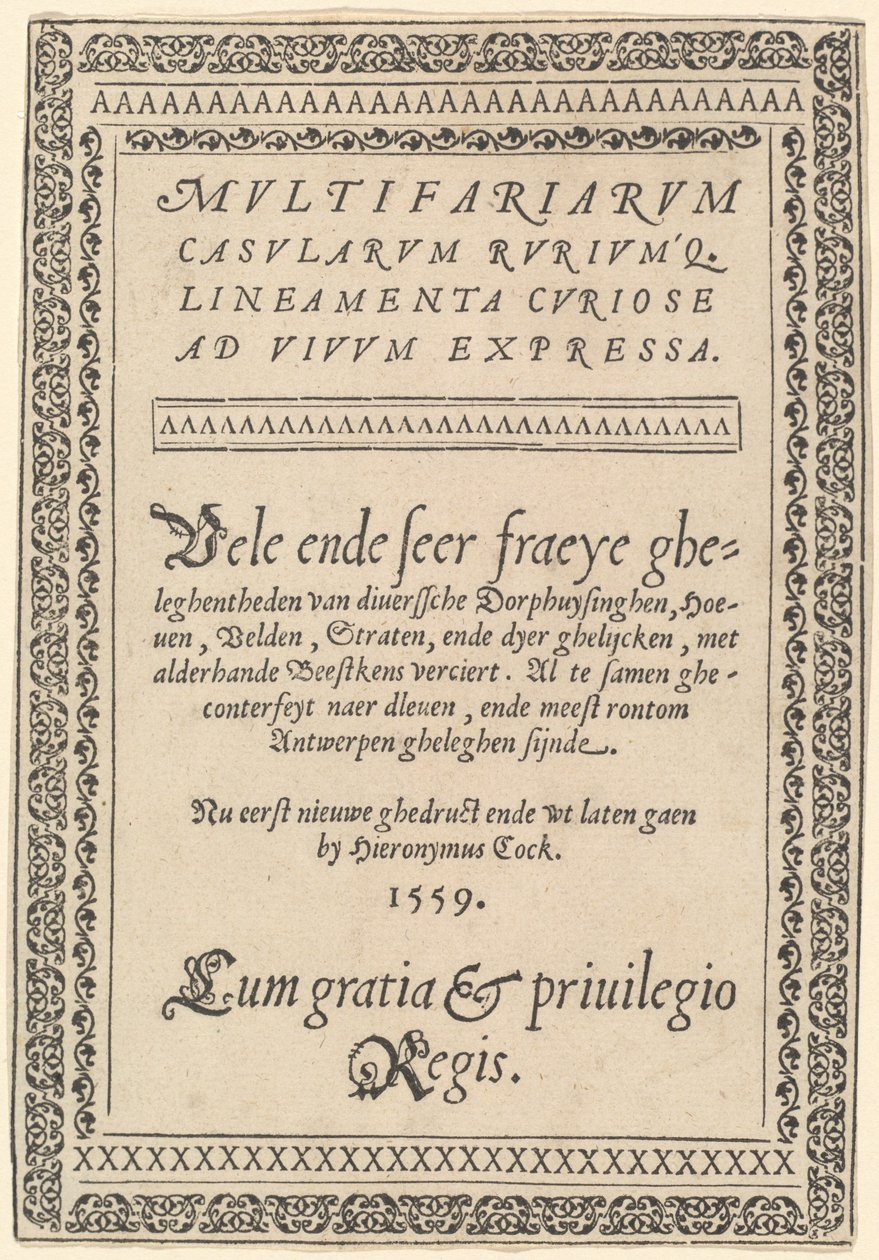 AAAAAAAAAAAAAAAAAAAAAAAAAAAAAA
MVLTIFARIARVM
CASVLARVM RVRIVM'Q.
LINEAMENTA CVRIOSE
AD VIVVM EXPRESSA.
ΛΛΛΛΛΛΛΛΛΛΛΛΛΛΛΛΛΛΛΛΛΛΛΛΛΛΛ
Vele ende ſeer fraeye ghe⸗
leghentheden van diuerſſche Dorphuyſinghen, Hoe-
uen, Velden, Straten, ende dyer ghelijcken, met
alderhande Beeſtkens verciert. Al te ſamen ghe-
conterfeyt naer dleuen, ende meeſt rontom
Antwerpen gheleghen ſijnde.
Nu eerſt nieuwe ghedruct ende wt laten gaen
by Hieronymus Cock.
1559.
Cum gratia & priuilegio
Regis.
XXXXXXXXXXXXXXXXXXXXXXXXXXXXXX